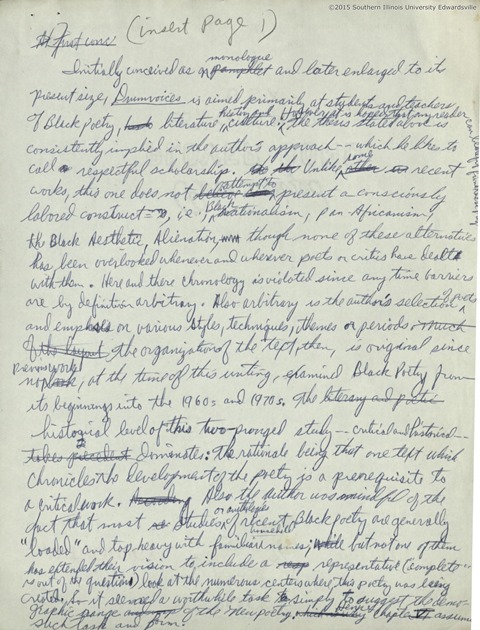 ©2015 Southern Illinois University Edwardsville
At first conc (insert page 1)
monologue
Initially conceived as a pamphlet and later enlarged to its
present size, Drumvoices is aimed primarily at students and teachers
of Black Poetry, literature, history and culture. However, it is hoped that any reader
can
The thesis stated above is
consistently implied in the author's approach -- which he likes to
call respectful scholarship. Unlike some other recent
works, this one does not attempt to present a consciously
labored construct -- i.e., Black Nationalism, Pan Africanism,
the Black Aesthetic, Alienation, though none of these alternatives
has been overlooked whenever and wherever poets or critics have dealt
with them. Here and there chronology is violated since any time barriers
are by definition arbitrary. Also arbitrary is the author's selection of poets
and emphasis on various styles, techniques, themes or periods. Much
of the layout, the organization of the text, then, is original since
previous works
no book, at the time of this writing, examined Black Poetry from
its beginnings into the 1960s and 1970s. The literary and poetic
historical level of this two-pronged study -- critical and historical --
takes precedent dominates: the rationale being that one text which
chronicles the development of the poetry is a prerequisite to
a critical work. Also the author was mindful of the
or anthologies
fact that most studies of recent Black poetry are generally
household
"loaded" and top heavy with familiar names; while but not one of them
has extended their vision to include a representative (complete
is out of the question) look at the numerous centers where this poetry was being
created. So it seemed a worthwhile task to simply to suggest the demo-
graphic range of the New poetry. Hence chapter VI assumes
such task and form.